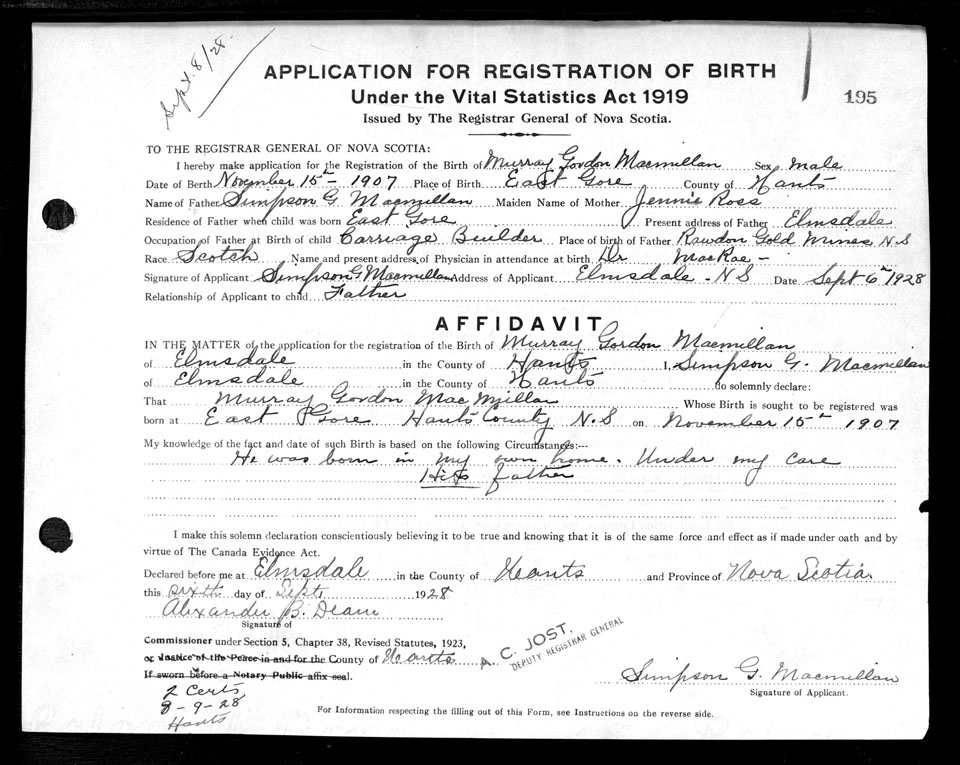 Sept. 8/28.
APPLICATION FOR REGISTRATION OF BIRTH
Under the Vital Statistics Act 1919
195
Issued by The Registrar General of Nova Scotia.
TO THE REGISTRAR GENERAL OF NOVA SCOTIA:
I hereby make application for the Registration of the Birth of Murray Gordon Macmillan Sex male
Date of Berth November 15th 1907 Place of Birth East Gore County of Hants
Name of Father Simpson G Macmillan Maiden Name of Mother Jennie Ross
Residence of Father when child was born East Gore Present address of Father Elmsdale
Occupation of Father at Birth of child Carriage Builder Place of birth of Father Rawdon Gold Mines N.S
Race Scotch Name and present address of Physician in attendance at birth Dr MacRae -
Signature of Applicant Simpson G Macmillan Address of Applicant Elmsdale - N S Date Sept 6th 1928
Relationship of Applicant to child Father
AFFIDAVIT
IN THE MATTER of the application for the registration of the Birth of Murray Gordon Macmillan
of Elmsdale in the County of Hants I, Simpson G. Macmillan
of Elmsdale in the County of Hants do solemnly declare:
That Murray Gordon MacMillan Whose Birth is sought to be registered was
born at East Gore Hants County N.S on November 15th 1907
My knowledge of the fact and date of such Birth is based on the following Circumstances:--
He was born in my own home. Under my care
His father
I make this solemn declaration conscientiously believing it to be true and knowing that it is of the same force and effect as if made under oath and by
virtue of The Canada Evidence Act.
Declared before me at Elmsdale in the County of Hants and Province of Nova Scotia
this sixth day of Sept 1928
Alexander B.
Signature of
Commissioner under Section 5, Chapter 38, Revised Statutes, 1923,
or Justice of the Peace in and for the County of Hants
If sworn before a Notary Public affix seal.
A. C. JOST,
DEPUTY REGISTRAR GENERAL
Simpson G. Macmillan
Signature of Applicant.
2 Certs
8-9-28
Hants
For Information respecting the filling out of this Form, see Instructions on the reverse side.